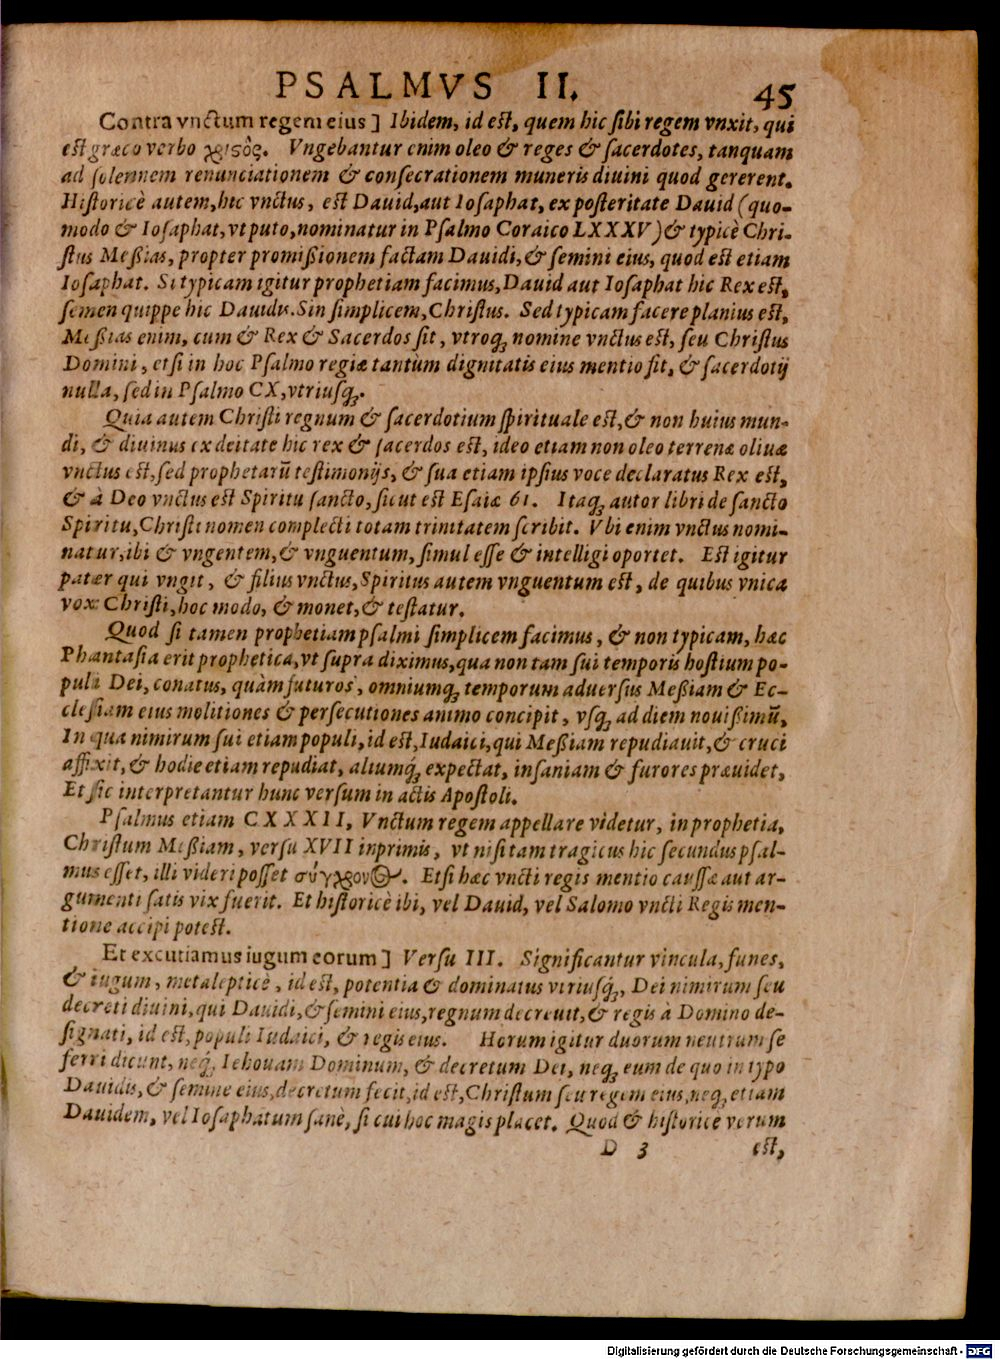 PSALMVS II. 45
Contra vnctum regem eius] Ibidem, id est, quem hic sibi regem vnxit, qui
est græco verbo χριϛὸς. Vngebantur enim oleo & reges & sacerdotes, tanquam
ad solennem renunciationem & consecrationem muneris diuini quod gererent.
Historicè autem, hic vnctus, est Dauid, aut Iosaphat, ex posteritate Dauid (quo-
modo & Iosaphat, vt puto, nominatur in Psalmo Coraico LXXXV) & typicè Chri-
stus Meßias, propter promißionem factam Dauidi, & semini eius, quod est etiam
Iosaphat. Si typicam igitur prophetiam facimus, Dauid aut Iosaphat hic Rex est,
semen quippe hic Dauidis. Sin simplicem, Christus. Sed typicam facere planius est,
Meßias enim, cum & Rex & Sacerdos sit, vtroq; nomine vnctus est, seu Christus
Domini, etsi in hoc Psalmo regiæ tantùm dignitatis eius mentio sit, & sacerdotij
nulla, sed in Psalmo CX, vtriusq;.
Quia autem Christi regnum & sacerdotium spirituale est, & non huius mun-
di, & diuinus ex deitate hic rex & sacerdos est, ideo etiam non oleo terrenæ oliuæ
vnctus est, sed prophetarũ testimonijs, & sua etiam ipsius voce declaratus Rex est,
& à Deo vnctus est Spiritu sancto, sicut est Esaiæ 61. Itaq; autor libri de sancto
Spiritu, Christi nomen complecti totam trinitatem scribit. Vbi enim vnctus nomi-
natur, ibi & vngentem, & vnguentum, simul esse & intelligi oportet. Est igitur
pater qui vngit, & filius vnctus, Spiritus autem vnguentum est, de quibus vnica
vox Christi, hoc modo, & monet, & testatur.
Quod si tamen prophetiam psalmi simplicem facimus, & non typicam, hæc
Phantasia erit prophetica, vt supra diximus, qua non tam sui temporis hostium po-
puli Dei, conatus, quàm futuros, omniumq; temporum aduersus Meßiam & Ec-
clesiam eius molitiones & persecutiones animo concipit, vsq; ad diem nouißimũ,
In qua nimirum sui etiam populi, id est, Iudaici, qui Meßiam repudiauit, & cruci
affixit, & hodie etiam repudiat, aliumq́; expectat, insaniam & furores præuidet,
Et sic interpretantur hunc versum in actis Apostoli.
Psalmus etiam CXXXII, Vnctum regem appellare videtur, in prophetia,
Christum Meßiam, versu XVII inprimis, vt nisi tam tragicus hic secundus psal-
mus esset, illi videri posset σύγχρονος. Etsi hæc vncti regis mentio caussæ aut ar-
gumenti satis vix fuerit. Et historicè ibi, vel Dauid, vel Salomo vncti Regis men-
tione accipi potest.
Et excutiamus iugum eorum] Versu III. Significantur vincula, funes,
& iugum, metalepticè, id est, potentia & dominatus vtriusq́;, Dei nimirum seu
decreti diuini, qui Dauidi, & semini eius, regnum decreuit, & regis à Domino de-
signati, id est, populi Iudaici, & regis eius. Horum igitur duorum neutrum se
ferri dicunt, neq́; Iehouam Dominum, & decretum Dei, neq; eum de quo in typo
Dauidis, & semine eius, decretum fecit, id est, Christum seu regem eius, neq; etiam
Dauidem, vel Iosaphatum sanè, si cui hoc magis placet. Quod & historice verum
D 3 est,
Digitalisierung gefördert durch die Deutsche Forschungsgemeinschaft - DFG